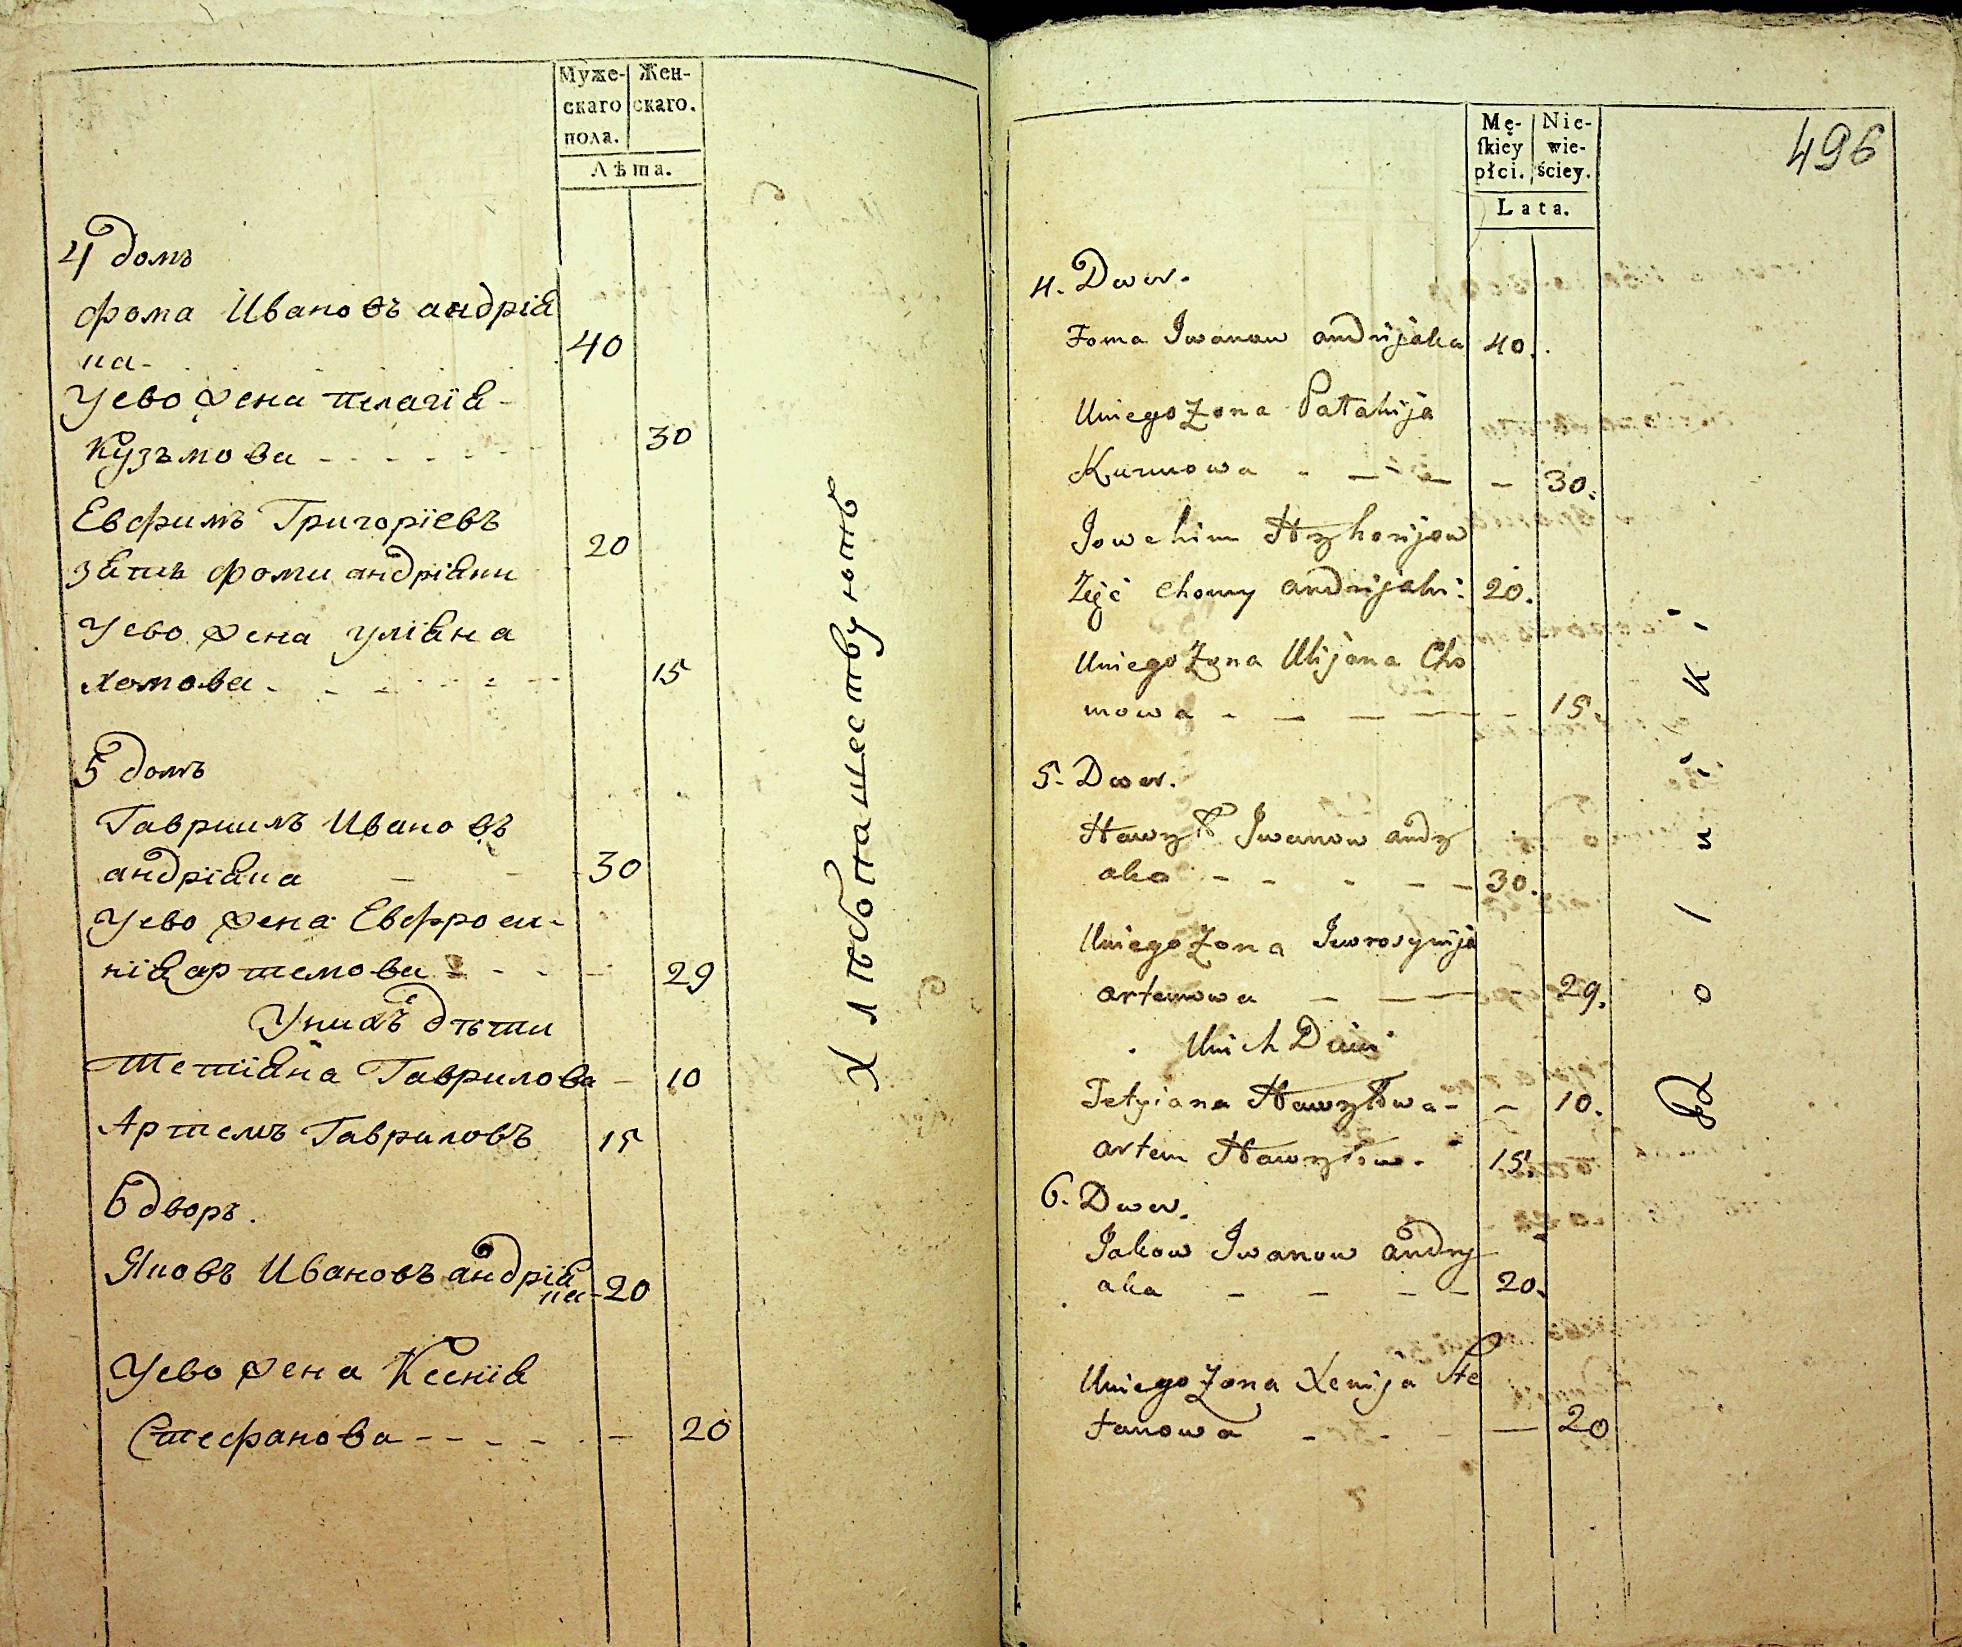 Муже- Жен-
скаго скаго.
пола.
Лѣта.
4 домъ
Фома Ивановъ андрія
ка - 40
Уево жена пелагія -
Кузьмова - - - - - 30
Евфимъ Григоріевъ
зять фоми андріяки 20
Уево жена уліяна
хомова - - - - - - 15
5 домъ
Гавриилъ Ивановъ
андріяка - - - 30
Уево жена Евфроси-
нія артемова - - - 29
Унихъ дѣти
Тетіяна Гаврилова - 10
Артемъ Гавриловъ 15
6 дворъ.
Яковъ Ивановъ андрія
ка - 20
Уево жена Ксенія
Стефанова - - - - - - 20
Хлѣбопашествуютъ
496
Mę- Nie-
skiey wie-
płci. ściey.
Lata.
4. Dwor.
Foma Iwanow andrijaka 40.
Uniego Zona Palahija
Kuzmowa - - - - 30.
Jowchim Hryhorijow
Zięć Chomy andrijaki: 20.
Uniego Zona Ulijana Cho
mowa - - - - - 15.
5. Dwor.
Hawrył Iwanow andry
aka - - - - - 30.
Uniego Zona Iwrosynija
artemowa - - - 29.
Unich Dzieci
Tetyiana Hawryłowa - - 10.
artem Hawryłow. 15.
6. Dwor.
Jakow Iwanow andry
aka - - - - 20.
Uniego Zona Xenija Ste
fanowa - - - - 20
Rolniki